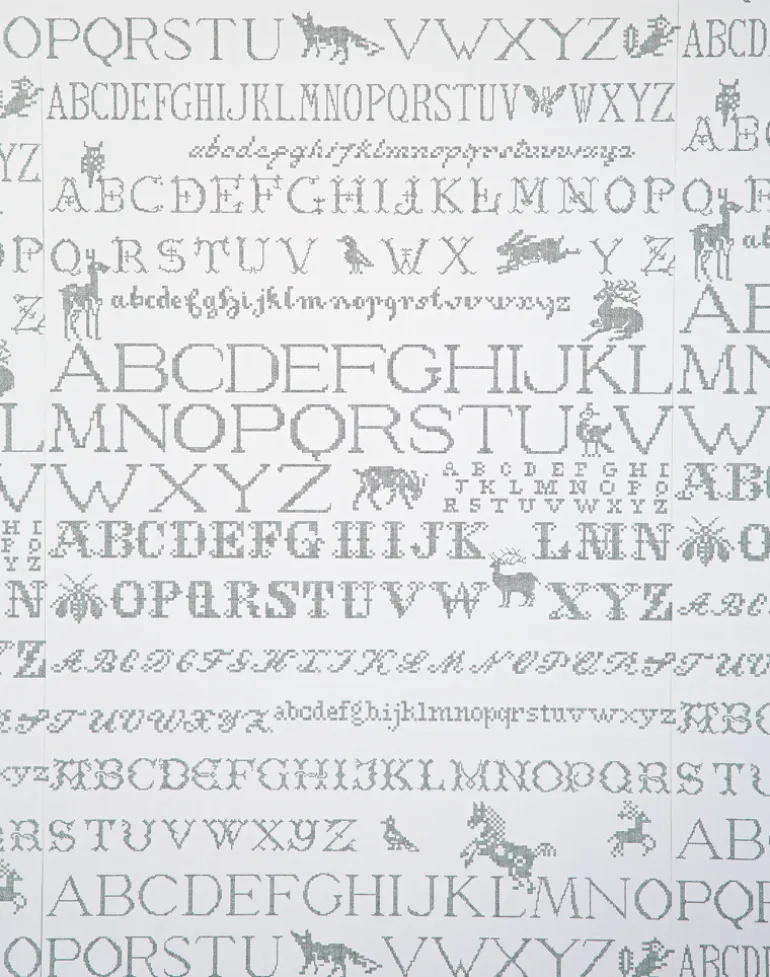 OPQRSTU VWXYZ ABCD
ABCDEFGHIJKLMNOPQRSTUV WXYZ
YZ abcdefghijklmnopqrstuvwxyz ABC
ABCDEFGHIJKLMNOPQR
OPQRSTUV WX YZ ab
Z abcdefghijklmnopqrstuvwxyz AB
ABCDEFGHIJKLMN
LMNOPQRSTU VW
VWXYZ
ABCDEFGHI
JKLMNOPQ
RSTUVWXYZ
AB
HI
PQ
YZ
ABCDEFGHIJK LMN O
N OPQRSTUVW XYZ ABC
YZ ABCDEFGHIJKLMNOPQRSTUV
RSTUVWXYZ abcdefghijklmnopqrstuvwxyz ABC
xyz ABCDEFGHIJKLMNOPQRSTU
RSTUVWXYZ AB
ABCDEFGHIJKLMNOPQP
OPQRSTU VWXYZ ABCD